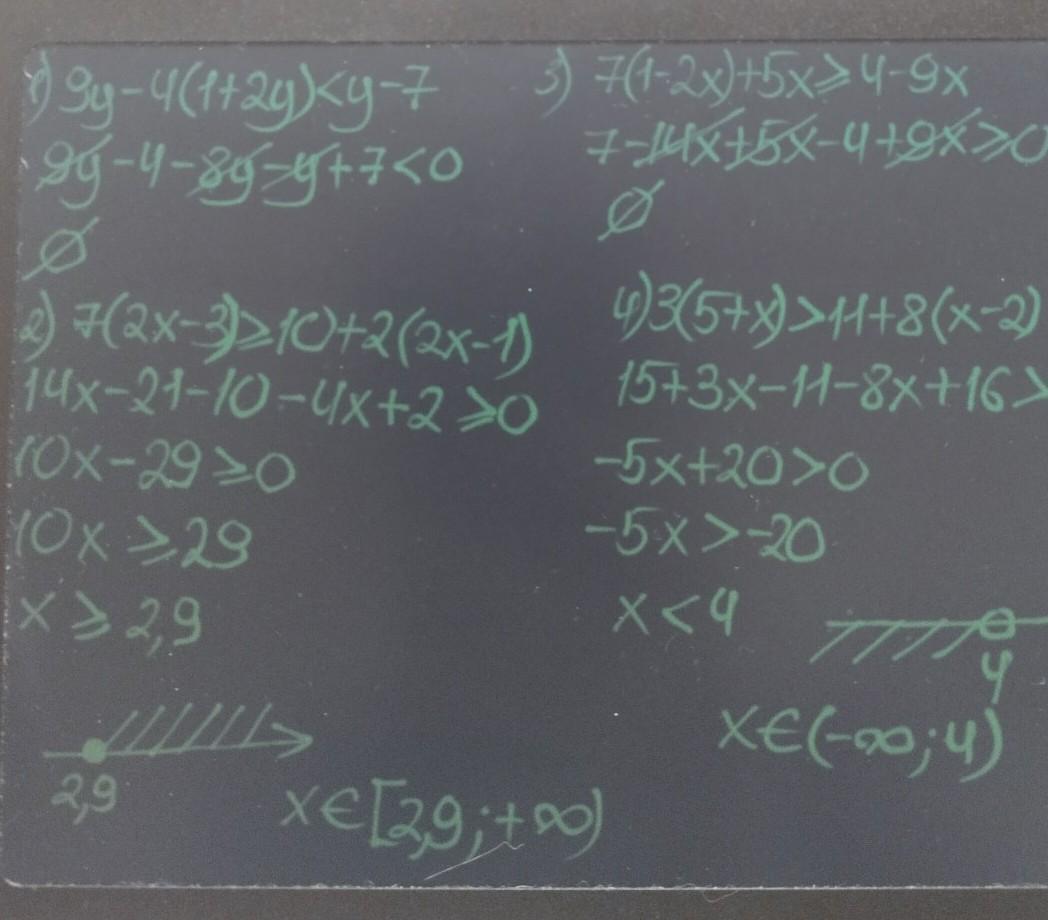 1) 9y-4(1+2y)<y-7
9y-4-8y-y+7<0
∅
2) 7(2x-3)≥10)+2(2x-1)
14x-21-10-4x+2≥0
10x-29≥0
10x≥29
x≥2,9
2,9
x∈[2,9;+∞)
3) 7(1-2x)+5x≥4-9x
7-14x+5x-4+9x≥0
∅
4) 3(5+x)>11+8(x-2)
15+3x-11-8x+16>
-5x+20>0
-5x>-20
x<4
4
x∈(-∞;4)